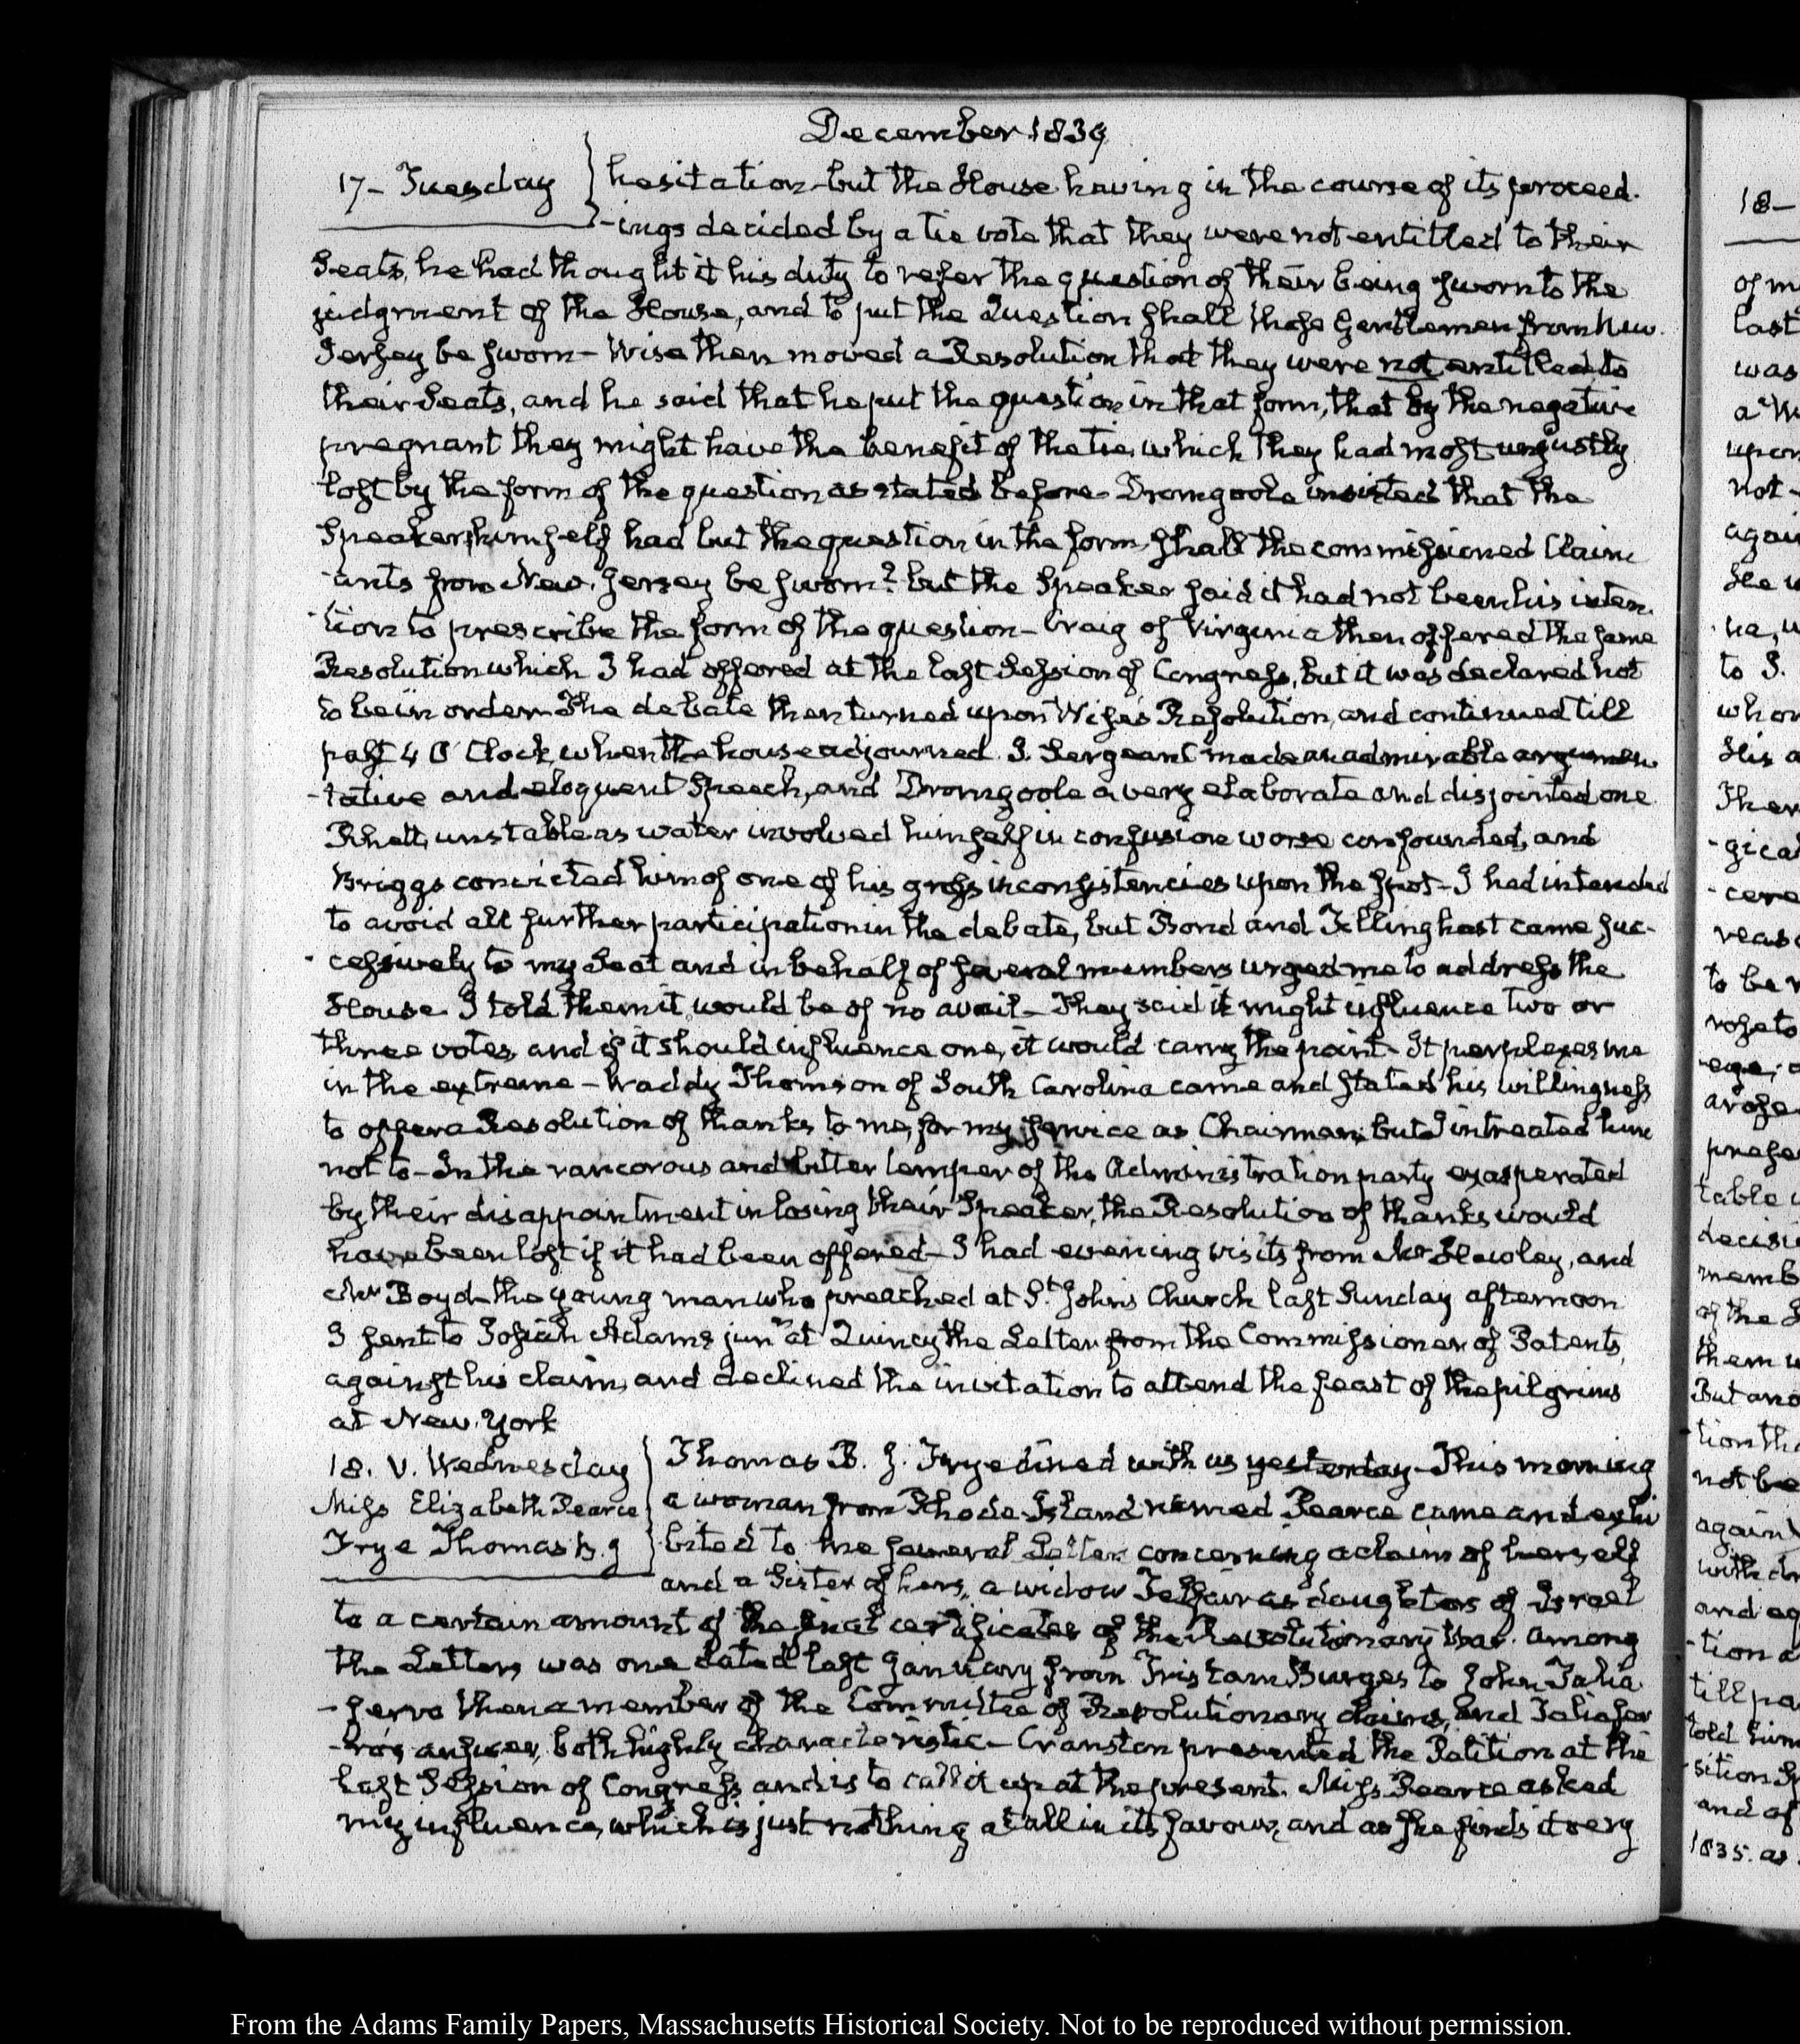 December 1839
17 - Tuesday hesitation but the House having in the course of its proceed-
-ings decided by a tie vote that they were not entitled to their
Seats, he had thought it his duty to refer the question of their being sworn to the
judgment of the House, and to put the Question shall those Gentlemen from New
Jersey be sworn - Wise then moved a Resolution that they were not entitled to
their Seats, and he said that he put the question in that form, that by the negative
pregnant they might have the benefit of the tie, which they had most unjustly
lost by the form of the question as stated before - Dromgoole insisted that the
Speaker himself had put the question in the form, shall the commissioned Claim
-ants from New Jersey be sworn? but the Speaker said it had not been his inten-
-tion to prescribe the form of the question - Craig of Virginia then offered the same
Resolution which I had offered at the last Session of Congress, but it was declared not
to be in order. The debate then turned upon Wise's Resolution, and continued till
past 4 O'Clock, when the house adjourned. J. Sergeant made an admirable argumen
-tative and eloquent Speech, and Dromgoole a very elaborate and disjointed one
Rhett, unstable as water involved himself in confusion worse confounded, and
Briggs convicted him of one of his gross inconsistencies upon the spot - I had intended
to avoid all further participation in the debate, but Bond and Tillinghast came suc-
-cessively to my Seat and in behalf of several members urged me to address the
House. I told them it would be of no avail - They said it might influence two or
three votes, and if it should influence one, it would carry the point - It perplexes me
in the extreme - Waddy Thomson of South Carolina came and stated his willingness
to offer a Resolution of thanks to me, for my service as Chairman; but I intreated him
not to - In the rancorous and bitter temper of the Administration party exasperated
by their disappointment in losing their Speaker, the Resolution of thanks would
have been lost if it had been offered - I had evening visits from Mr Hawley, and
Mr Boyd the young man who preached at St. Johns Church last Sunday afternoon
I sent to Josiah Adams junr. at Quincy the Letter from the Commissioner of Patents,
against his claim, and declined the invitation to attend the feast of the pilgrims
at New York
18. V. Wednesday Thomas B. J. Frye dined with us yesterday - This morning
Miss Elizabeth Pearce a woman from Rhode-Island named Pearce came and exhi
Frye Thomas B. J bited to me several Letters concerning a claim of herself
and a Sister of hers, a widow as daughters of Israel
to a certain amount of the final certificates of the Revolutionary War. among
the Letters, was one dated last January from Tristam Burges to John Talia
-ferro then a member of the Committee of Revolutionary claims, and Taliafer
-ro's answer, both highly characteristic - Cranston presented the Petition at the
last Session of Congress, and is to call it up at the present. Miss Pearce asked
my influence, which is just nothing at all in its favour, and as she finds it very
18-
of m
last
was
a
upon
not -
again
See
he,
to J.
whom
His a
Ther
-gical
-cere
reas
to be
rose to
-ege,
arose
prese
table
decisi
memb
of the
them w
But ano
-tion tha
not be
again
with
and
-tion a
till pa
told him
-sition
and of
1835. as
From the Adams Family Papers, Massachusetts Historical Society. Not to be reproduced without permission.